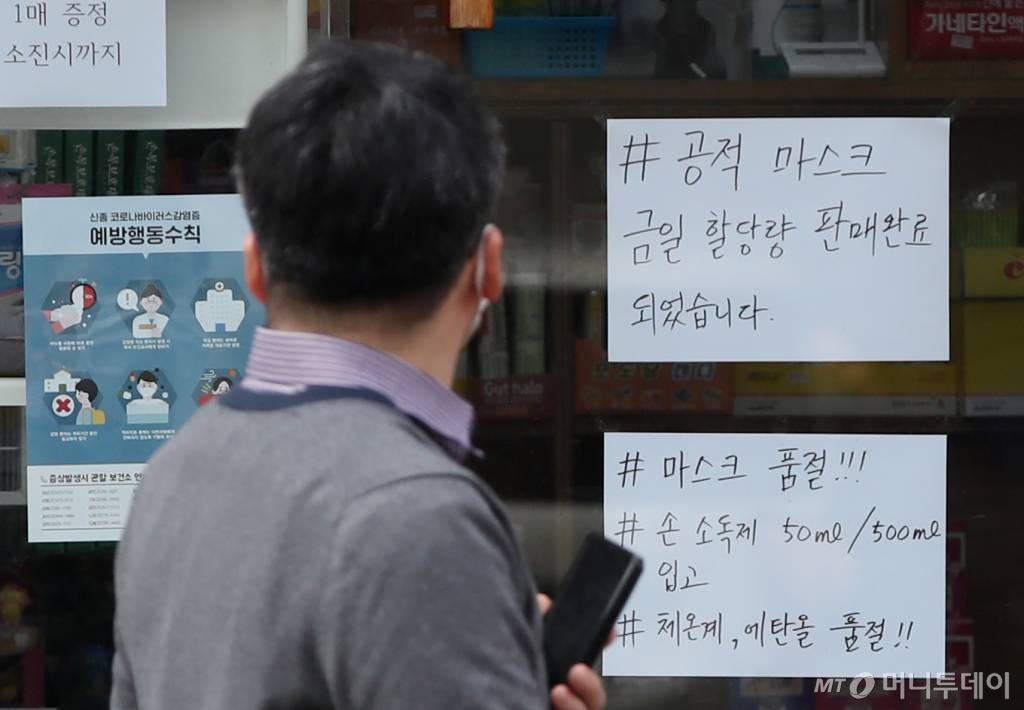 1매 증정
소진시까지
신종 코로나바이러스감염증
예방행동수칙
증상발생시 관할 보건소 연
# 공적 마스크
금일 할당량 판매완료
되었습니다.
# 마스크 품절!!!
# 손 소독제 50ml/500ml
입고
# 체온계, 에탄올 품절!!
가네타인액
Gut halo
MT 머니투데이